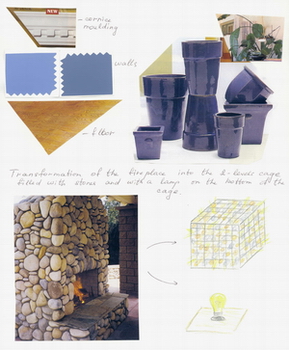 NEW
- cornice
moulding
walls
- floor
Transformation of the fireplace into the 2-level cage
filled with stones and with a lamp on the bottom of the
cage